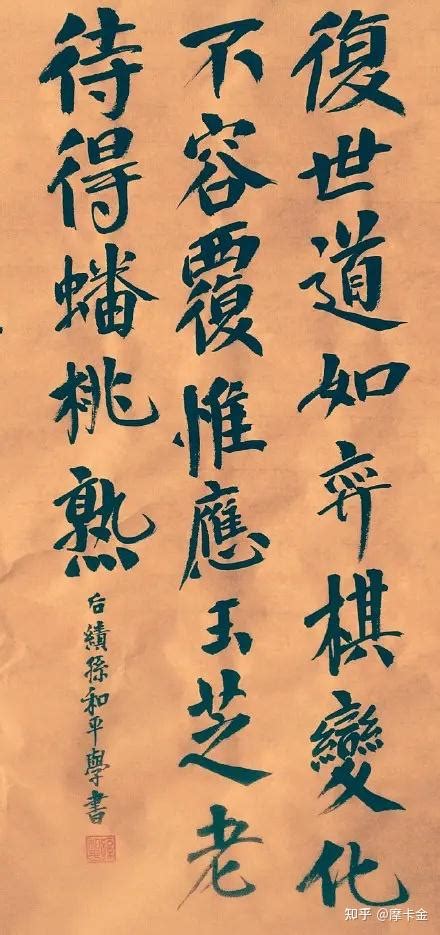 復世道如弈棋變化
不容覆惟應玉芝老
待得蟠桃熟
后績孫和平學書
知乎 @摩卡金